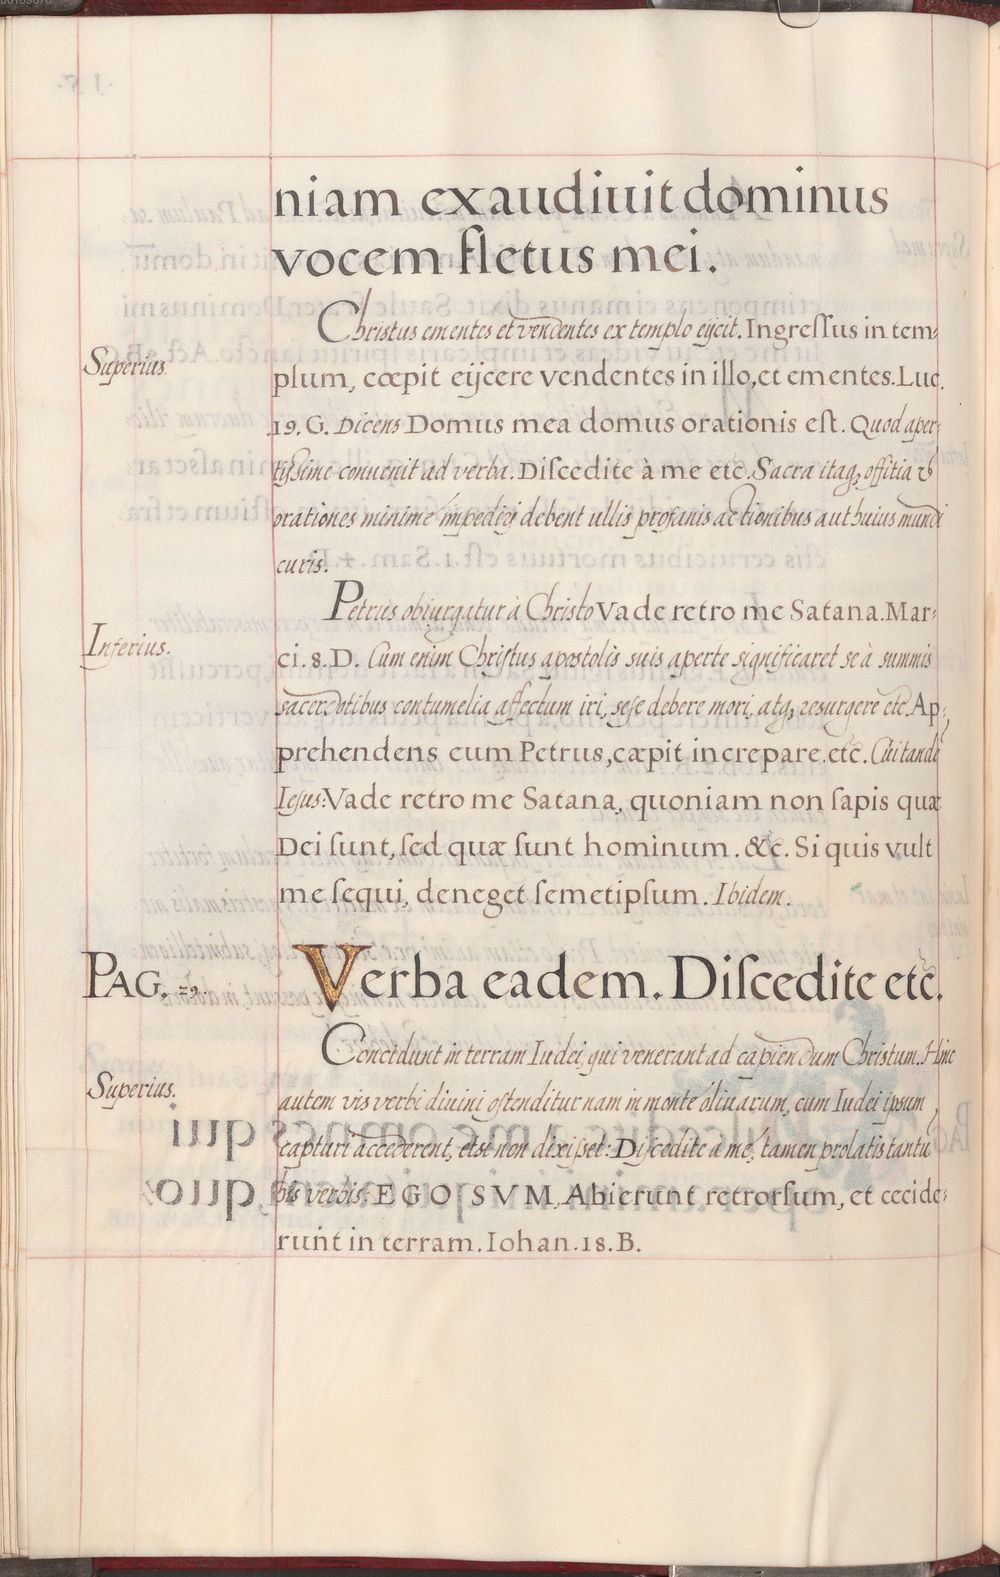 niam exaudiuit dominus
vocem fletus mei.
Christus ementes et vendentes ex templo eijcit. Ingreſſus in tem=
Superius.
plum, cœpit eijcere vendentes in illo, et ementes. Luc.
19. G. Dicens Domus mea domus orationis eſt. Quod aper=
tiſsime conuenit ad verba. Diſcedite à me etc. Sacra itaqꝫ offitia &
orationes minime impediri debent ullis profanis actionibus aut huius mundi
curis.
Petrus obiurgatur à Christo Vade retro me Satana. Mar=
Inferius.
ci. 8. D. Cum enim Chriſtus apostolis suis aperte significaret se à summis
sacerdotibus contumelia affectum iri, sese debere mori, atqꝫ resurgere etc. Ap=
prehendens eum Petrus, cæpit increpare. etc. Cui tandē
Iesus: Vade retro me Satana, quoniam non ſapis quæ
Dei ſunt, ſed quæ ſunt hominum. &c. Si quis vult
me ſequi, deneget ſemetipſum. Ibidem.
PAG. 29. Verba eadem. Diſcedite etc.
Concidunt in terram Iudei, qui venerant ad capiendum Christum. Hinc
Superius.
autem vis verbi diuini oſtenditur nam in monte oliuarum, cum Iudei ipsum
capturi accederent, etsi non dixiſset: Diſcedite a me, tamen prolatis tantū
his verbis: EGO SVM. Abierunt retrorſum, et cecide=
runt in terram. Iohan. 18. B.